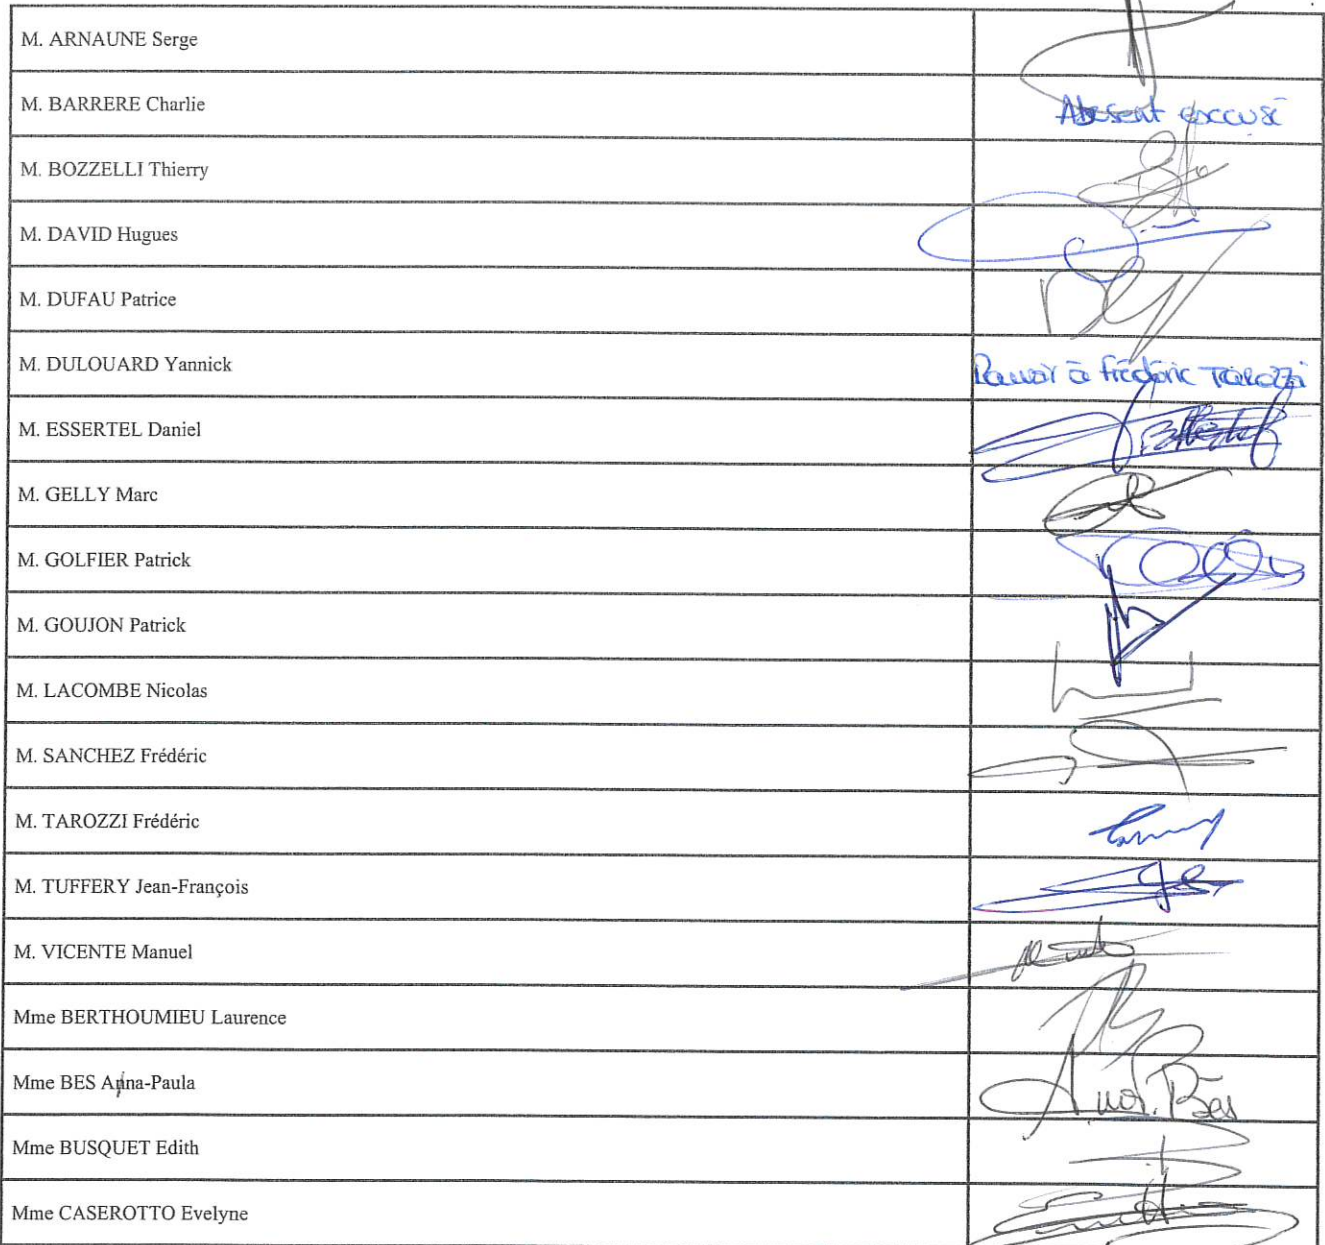 M. ARNAUNE Serge
M. BARRERE Charlie
Absent excusé
M. BOZZELLI Thierry
M. DAVID Hugues
M. DUFAU Patrice
M. DULOUARD Yannick
Pouvoir à Frédéric TAROZZI
M. ESSERTEL Daniel
M. GELLY Marc
M. GOLFIER Patrick
M. GOUJON Patrick
M. LACOMBE Nicolas
M. SANCHEZ Frédéric
M. TAROZZI Frédéric
M. TUFFERY Jean-François
M. VICENTE Manuel
Mme BERTHOUMIEU Laurence
Mme BES Anna-Paula
Mme BUSQUET Edith
Mme CASEROTTO Evelyne